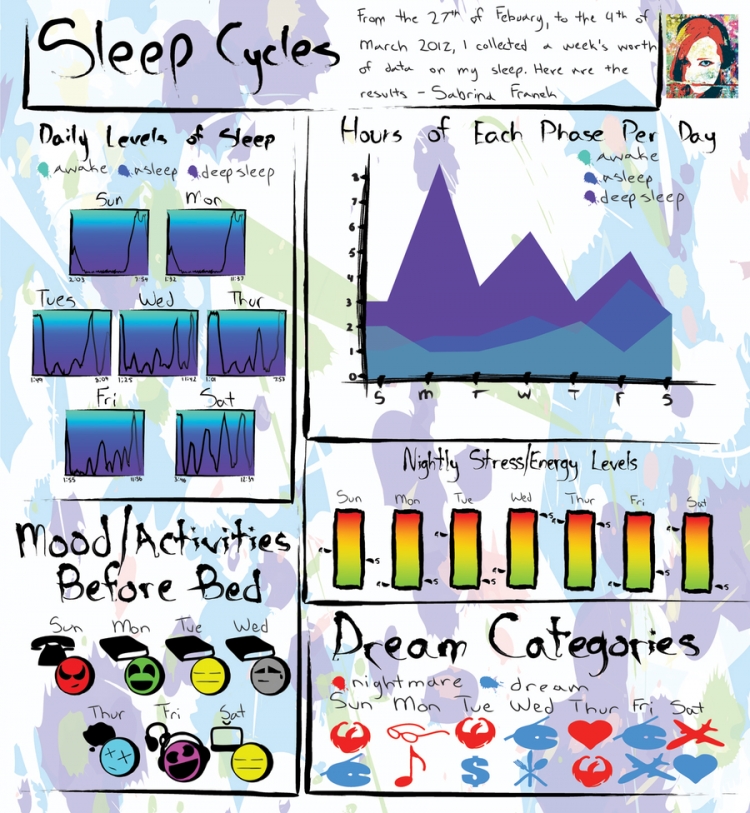 Sleep Cycles
From the 27th of Febuary, to the 4th of
March 2012, I collected a week's worth
of data on my sleep. Here are the
results - Sabrina Franek
Daily Levels of Sleep
awake asleep deep sleep
Sun Mon
2:03
Tues Wed Thur
1:25 11:42
Fri Sat
1:55 11:56
Hours of Each Phase Per Day
awake
asleep
deep sleep
8
7
6
5
4
3
2
1
0
S M T W T F S
Nightly Stress/Energy Levels
Sun Mon Tue Wed Thur Fri Sat
Mood/Activities
Before Bed
Sun Mon Tue Wed
Thur Fri Sat
Dream Categories
nightmare dream
Sun Mon Tue Wed Thur Fri Sat
$